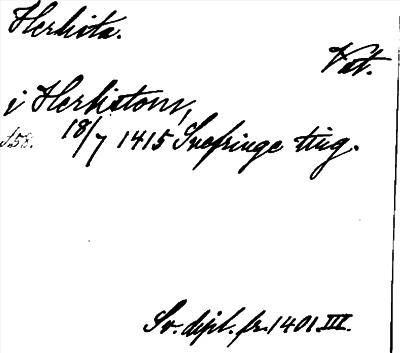 Herkista.
Vät.
i Herkistom,
s. 58. 18/7 1415 Snefringe ting.
Sv. dipl. fr. 1401 III.